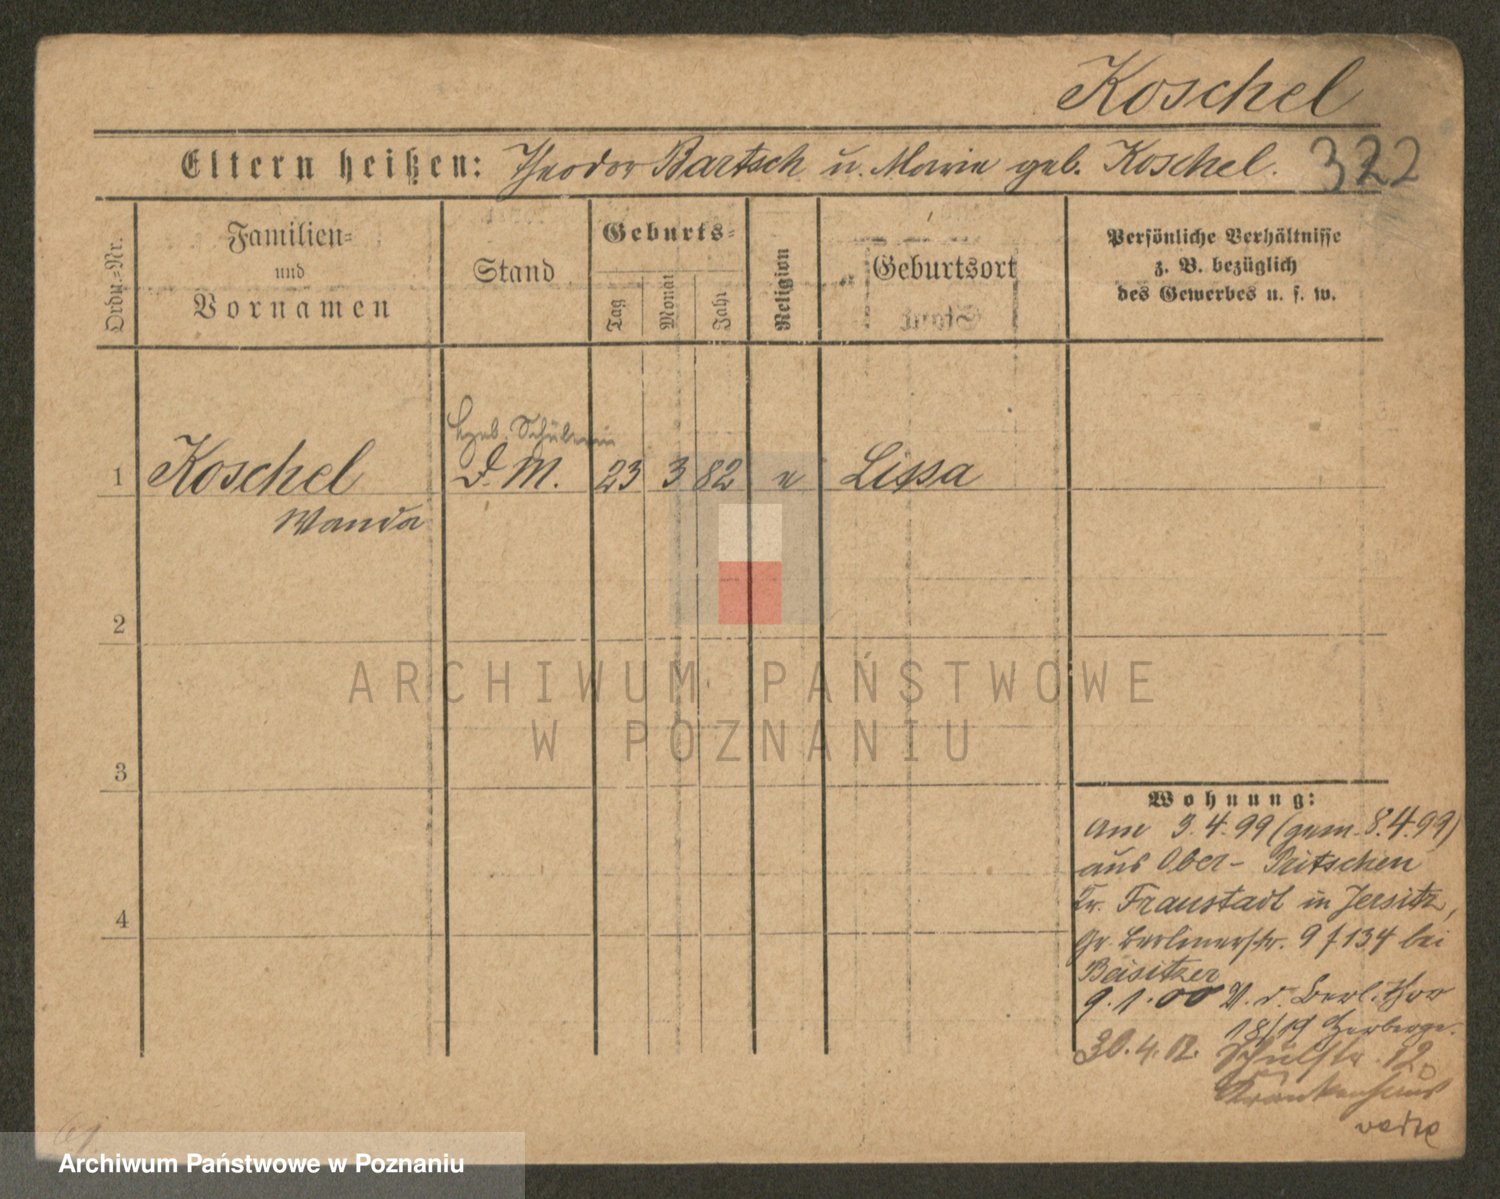 Koschel
Eltern heißen: Theodor Bartsch u. Marie geb. Koschel. 322
Ordn.=Nr.
Familien=
und
Vornamen
Stand
Geburts=
Tag
Monat
Jahr
Religion
Geburtsort
Persönliche Verhältnisse
z. B. bezüglich
des Gewerbes u. s. w.
Schülerin
1 Koschel D. M. 23 3 82 e Lissa
Wanda
2
3
4
ARCHIWUM PAŃSTWOWE
W POZNANIU
Wohnung:
Am 3.4.99 (gem. 8.4.99)
aus Ober- Pritschen
Kr. Fraustadt in Jersitz,
Gr. Berlinerstr. 9 f 134 bei
Bäsitzer
9.1.00 V. d. Berl. Thor
18/19 Herberge.
30.4. Schulstr. 12
Krankenhaus
Archiwum Państwowe w Poznaniu